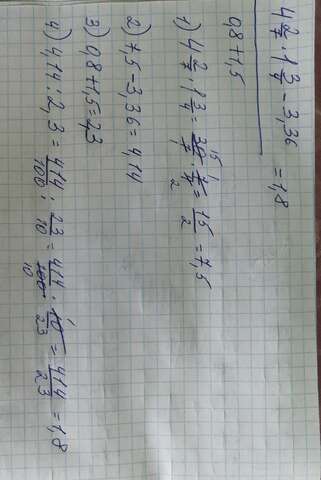 4 2/7 · 1 3/4 - 3,36
0,8 + 1,5 = 1,8
1) 4 2/7 · 1 3/4 = 30/7 · 7/4 = 15/2 = 7,5
2) 7,5 - 3,36 = 4,14
3) 0,8 + 1,5 = 2,3
4) 4,14 : 2,3 = 414/100 : 23/10 = 414/100 · 10/23 = 414/23 = 1,8